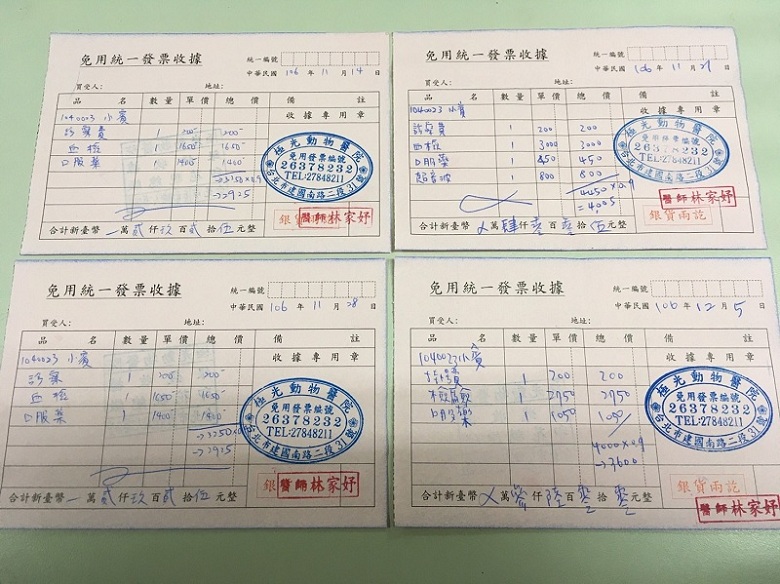 免用統一發票收據
統一編號
中華民國 106 年 11 月 14 日
買受人： 地址：
品 名 數量 單價 總價 備 註
收據專用章
1040023 小賓
診察費 1 200 200
血檢 1 1650 1650
口服藥 1 1400 1400
→2925
極光動物醫院
免用發票編號
26378232
TEL:27848211
台北市建國南路二段31號
醫師林家妤
合計新臺幣 萬 貳 仟 玖 百 貳 拾 伍 元整
免用統一發票收據
統一編號
中華民國 106 年 11 月 21 日
買受人： 地址：
品 名 數量 單價 總價 備 註
收據專用章
1040023 小賓
診察費 1 200 200
血檢 1 3000 3000
口服藥 1 450 450
超音波 1 800 800
4450×0.9
=4,005
極光動物醫院
免用發票編號
26378232
TEL:27848211
台北市建國南路二段31號
銀貨兩訖
醫師林家妤
合計新臺幣 萬 肆 仟 零 百 零 拾 伍 元整
免用統一發票收據
統一編號
中華民國 106 年 11 月 28 日
買受人： 地址：
品 名 數量 單價 總價 備 註
收據專用章
1040023 小賓
診察 1 200 200
血檢 1 1650 1650
口服藥 1 1400 1400
→2925
極光動物醫院
免用發票編號
26378232
TEL:27848211
台北市建國南路二段31號
銀 醫師林家妤
合計新臺幣 萬 貳 仟 玖 百 貳 拾 伍 元整
免用統一發票收據
統一編號
中華民國 106 年 12 月 5 日
買受人： 地址：
品 名 數量 單價 總價 備 註
收據專用章
1040023 小賓
1 200 200
1 2750 2750
口服藥 1 1050 1050
4000×0.9
→3600
極光動物醫院
免用發票編號
26378232
TEL:27848211
台北市建國南路二段31號
銀貨兩訖
醫師林家妤
合計新臺幣 萬 仟 陸 百 零 拾 零 元整